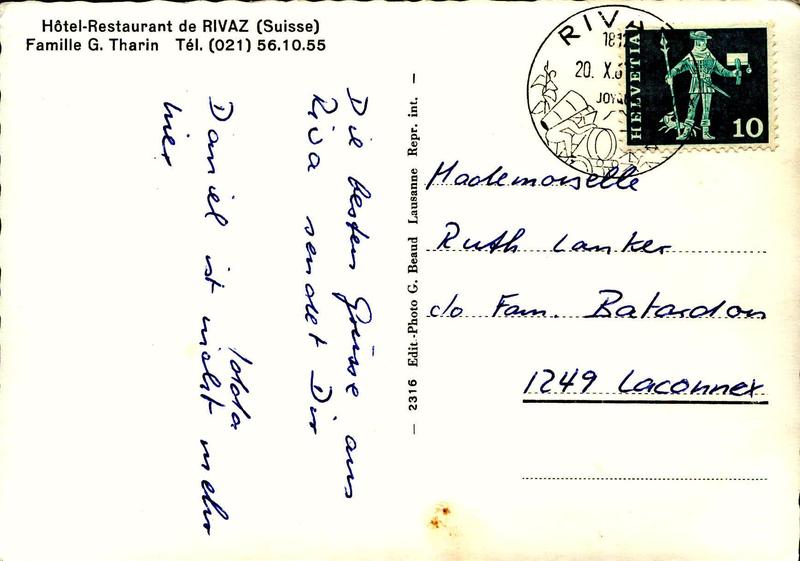 Hôtel-Restaurant de RIVAZ (Suisse)
Famille G. Tharin Tél. (021) 56.10.55
Die besten Grüsse aus
Riva sendet Dir
Daniel ist nicht mehr
hier
— 2316 Edit.-Photo G. Beaud Lausanne Repr. int. —
RIVAZ
1812
20. X.
HELVETIA
10
Mademoiselle
Ruth Lanker
c/o Fam. Batardon
1249 Laconnex